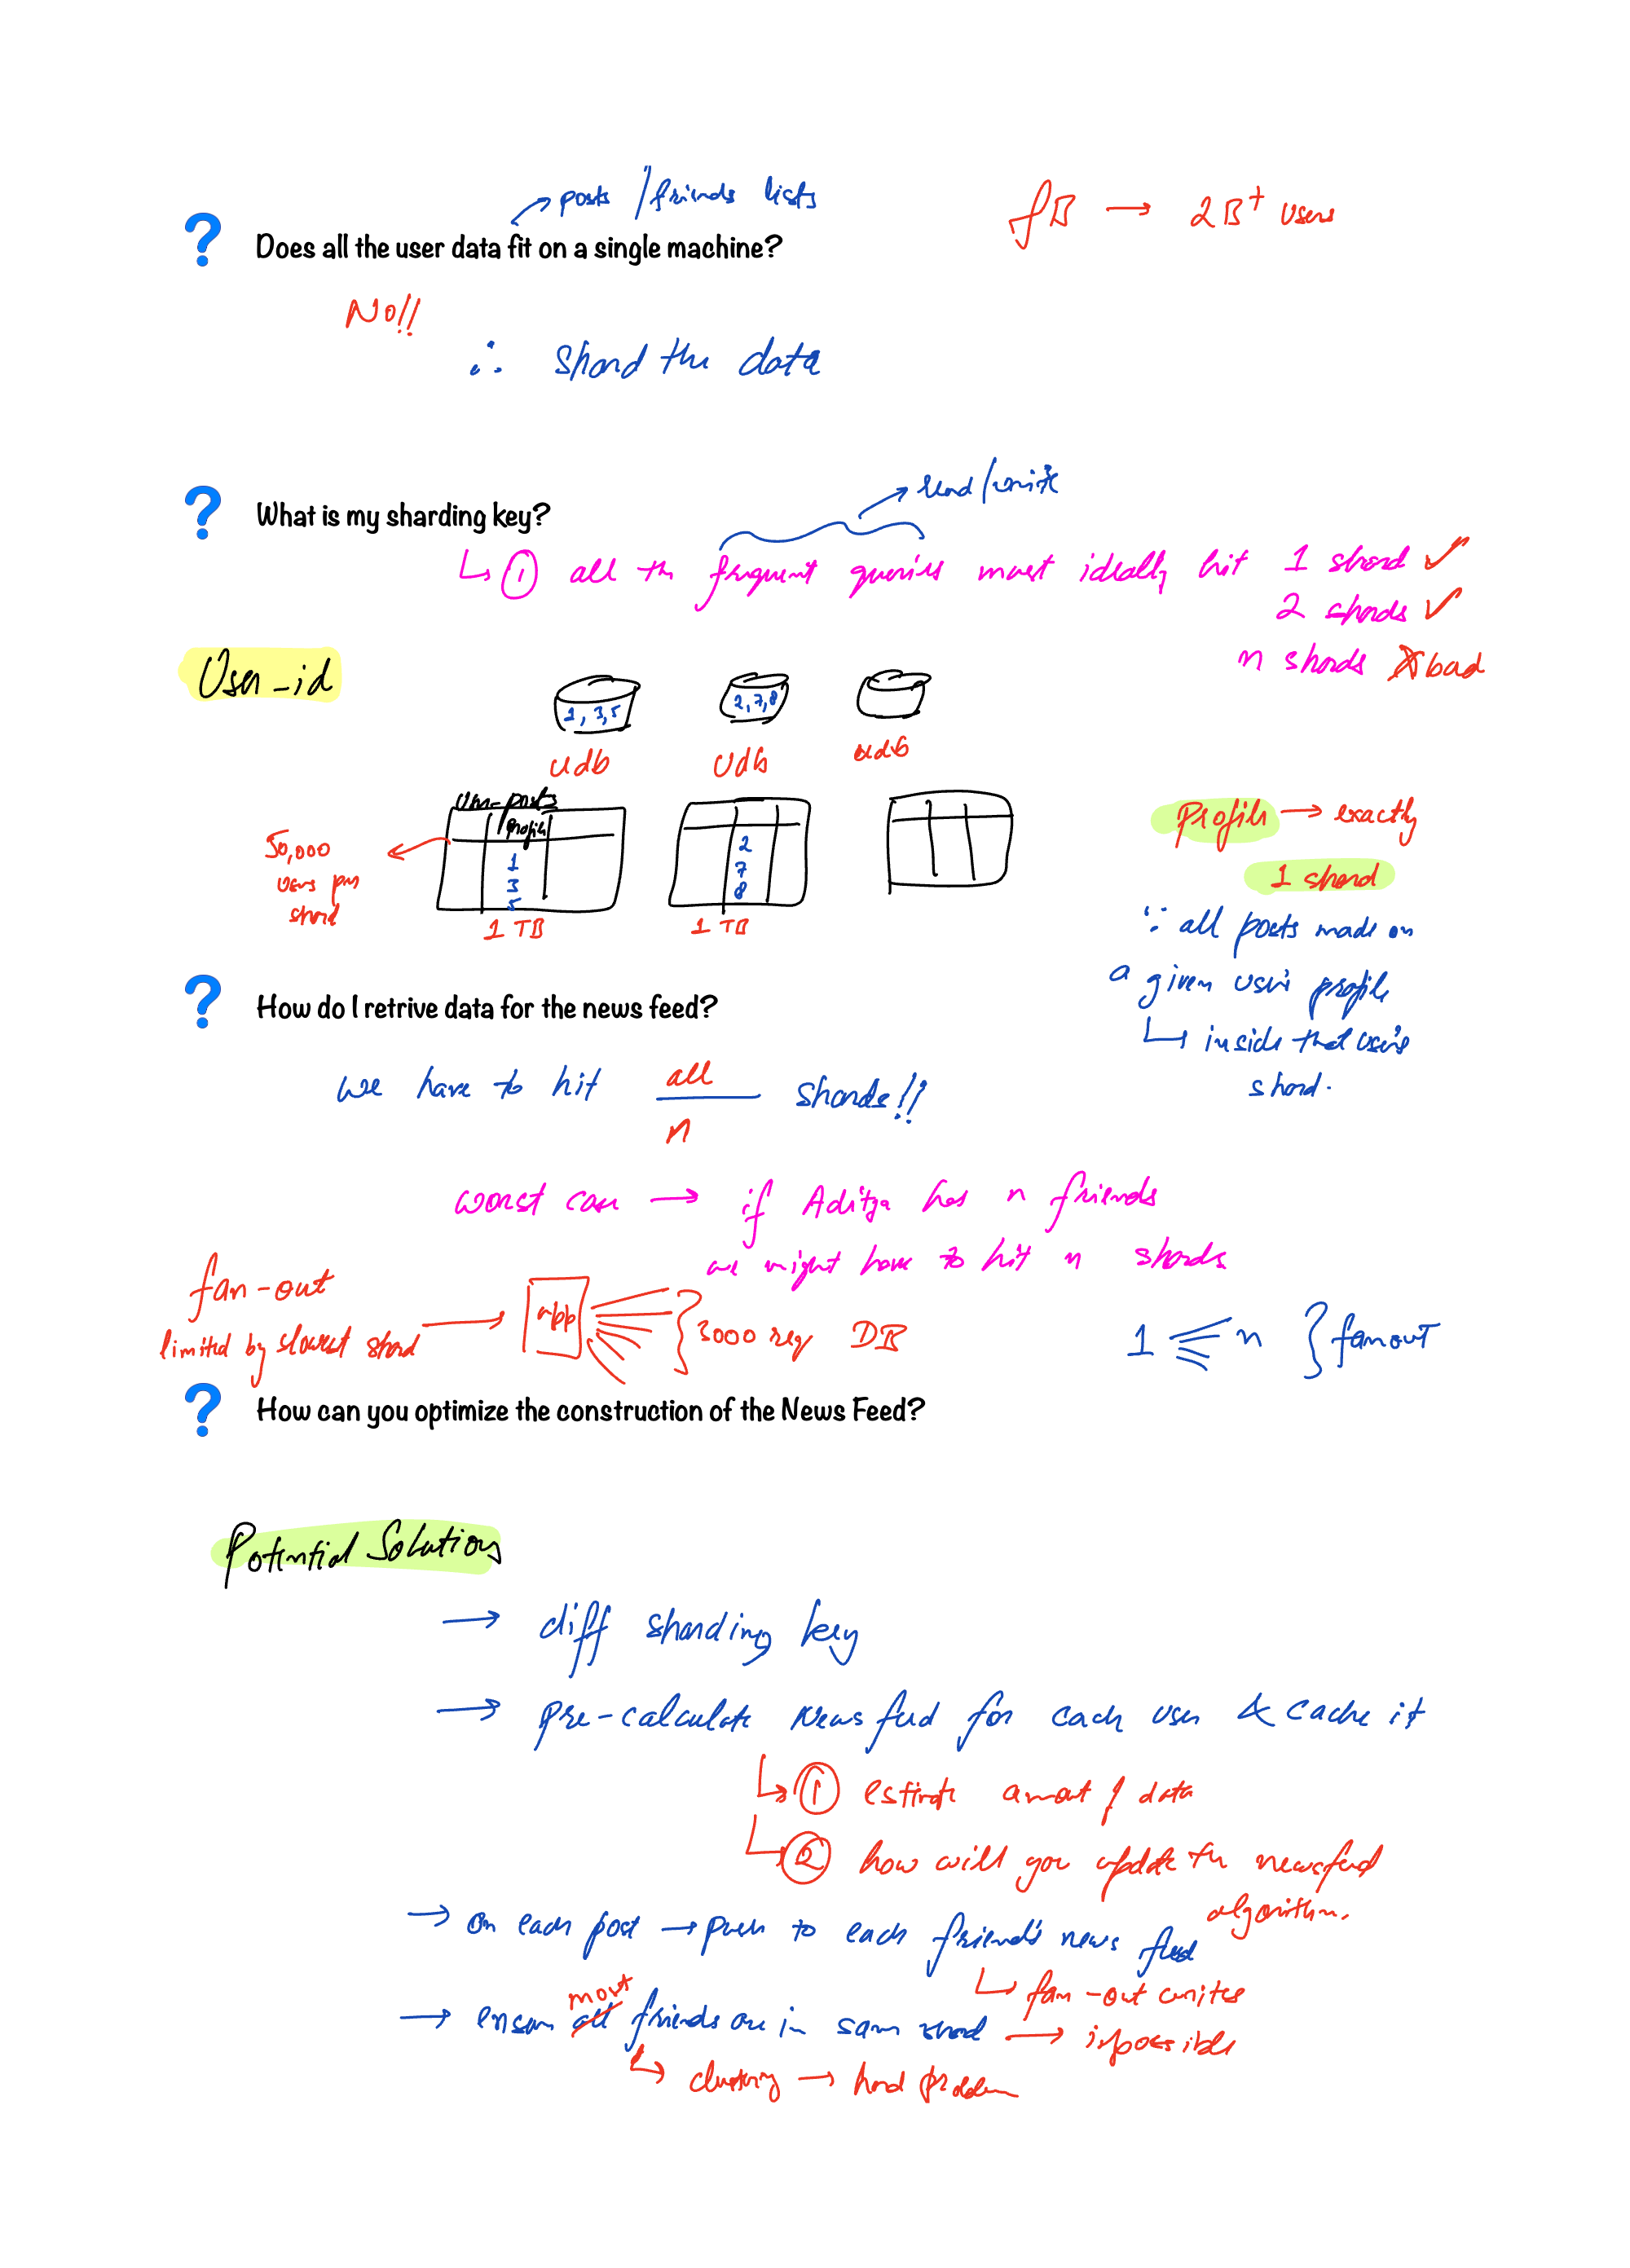 posts / friends lists
FB → 2B+ users
? Does all the user data fit on a single machine?
No!!
∴ Shard the data
read/write
? What is my sharding key?
↳ ① all the frequent queries must ideally hit 1 shard ✓
2 shards ✓
n shards ✗ bad
User_id
1, 3, 5
2, 7, 8
udb
Udb
udb
user-posts
profile
50,000
users per
shard
1
3
5
2
7
8
1 TB
1 TB
Profile → exactly
1 shard
∵ all posts made on
a given user's profile
↳ inside that user's
shard.
? How do I retrive data for the news feed?
we have to hit all shards!!
n
worst case → if Aditya has n friends
we might have to hit n shards
fan-out
limited by slowest shard → app } 3000 req DB
1 n } fanout
? How can you optimize the construction of the News Feed?
Potential Solutions
→ diff sharding key
→ pre-calculate news feed for each user & cache it
↳ ① estimate amount of data
↳ ② how will you update the newsfeed
algorithm.
→ on each post → push to each friend's news feed
↳ fan-out writes
most
→ ensure all friends are in same shard → impossible
↳ clustering → hard problem